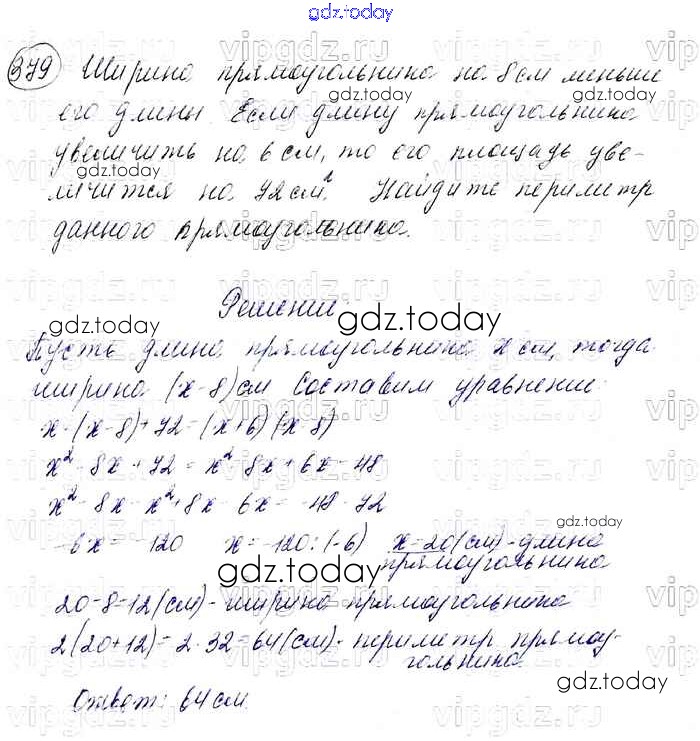 gdz.today
379 Ширина прямоугольника на 8 см меньше
его длины. Если длину прямоугольника
увеличить на 6 см, то его площадь уве-
личится на 72 см². Найдите периметр
данного прямоугольника.
Решение.
Пусть длина прямоугольника x см, тогда
ширина (x-8) см. Составим уравнение:
x·(x-8)+72=(x+6)(x-8)
x²-8x+72=x²-8x+6x-48
x²-8x-x²+8x-6x=-48-72
-6x=-120 x=-120:(-6) x=20(см)-длина
прямоугольника
20-8=12(см)-ширина прямоугольника
2(20+12)=2·32=64(см)-периметр прямоу-
гольника.
Ответ: 64 см.
vipgdz.ru
gdz.today